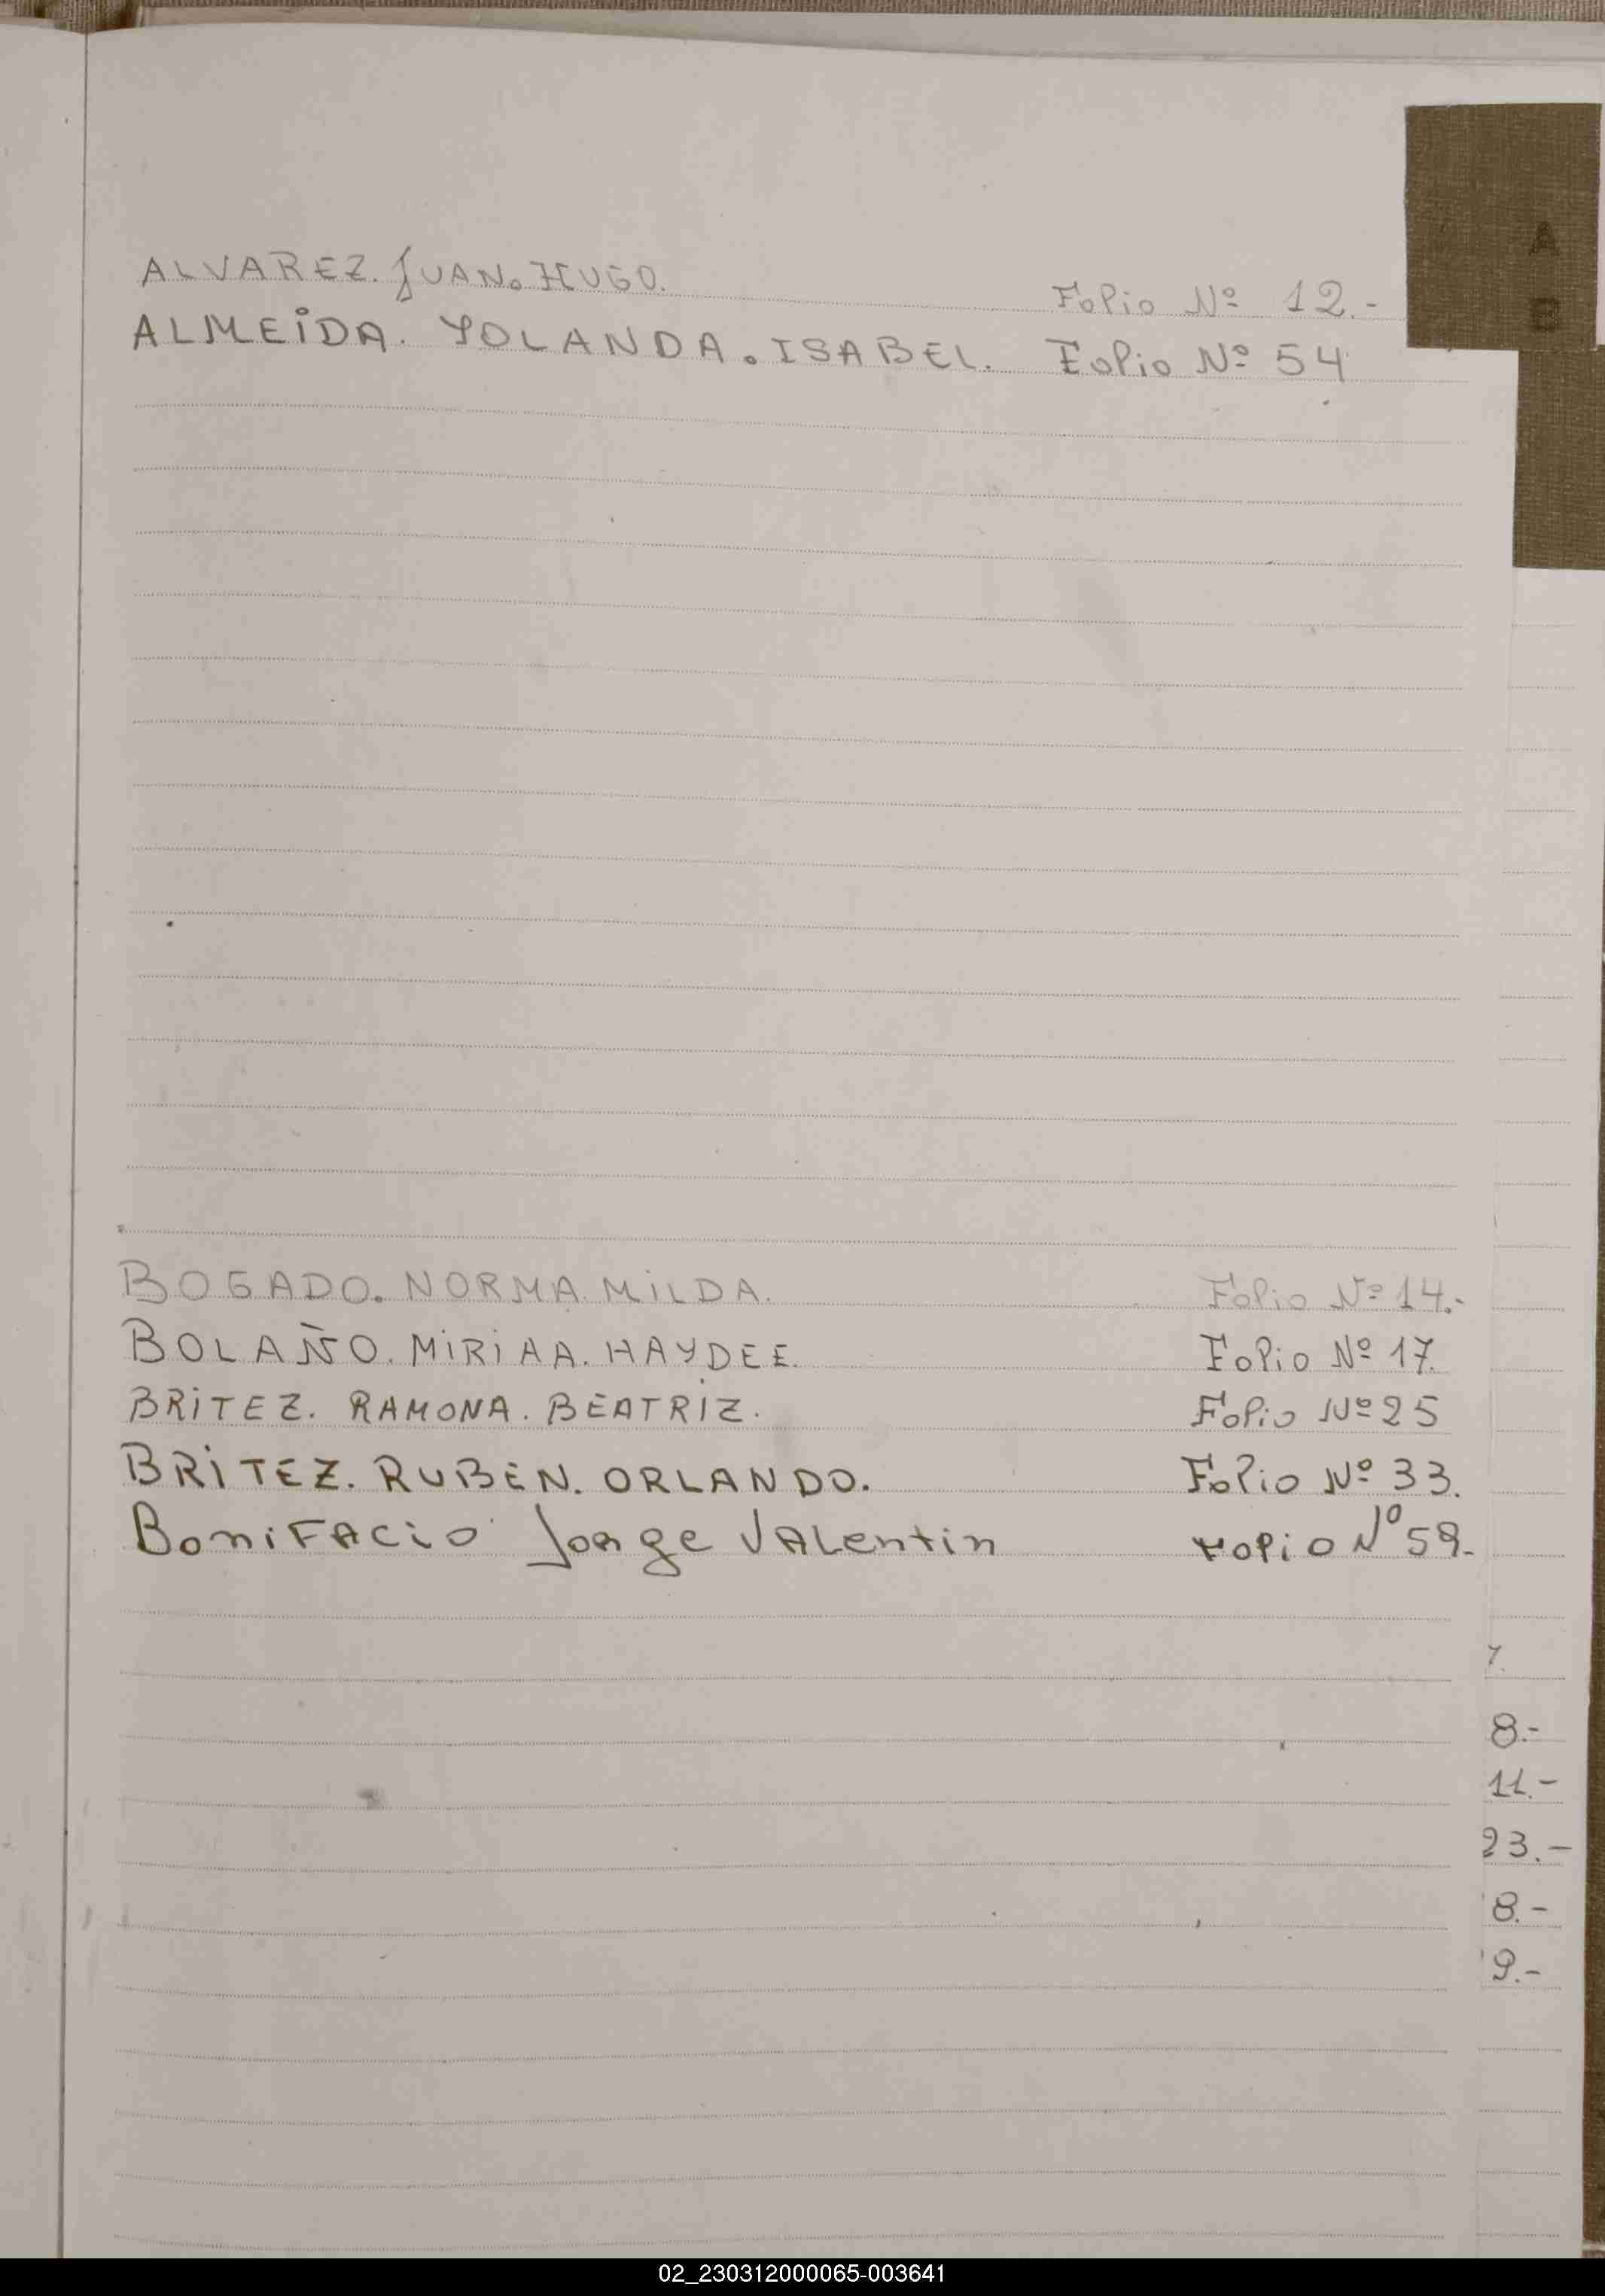 A
B
ALVAREZ. JUAN. HUGO. Folio Nº 12.-
ALMEIDA. YOLANDA. ISABEL. Folio Nº 54
BOGADO. NORMA MILDA. Folio Nº 14.-
BOLAÑO. MIRIAA. HAYDEE. Folio Nº 17.
BRITEZ. RAMONA. BEATRIZ. Folio Nº 25
BRITEZ. RUBEN. ORLANDO. Folio Nº 33.
BoniFAcio Jorge VALentin Folio Nº 59.-
7.
8.-
11.-
23.-
8.-
9.-
02_230312000065-003641